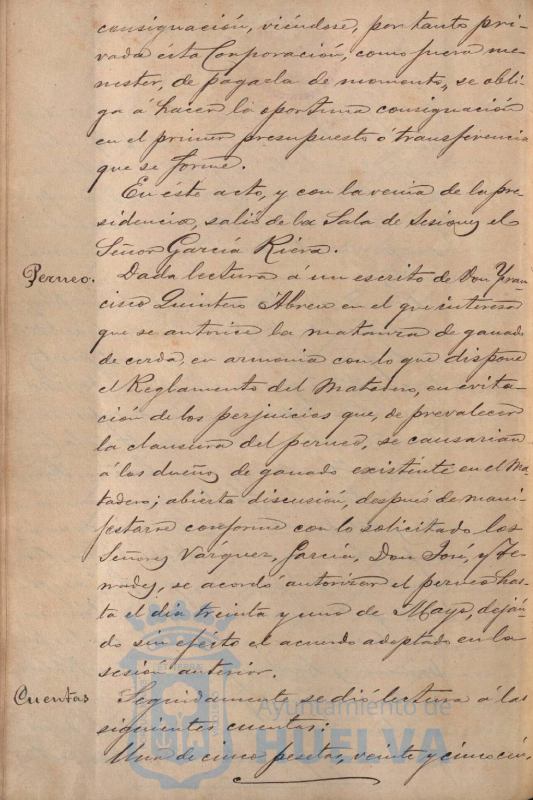 consignación, viéndose, por tanto pri-
vada ésta Corporación, como fuera me-
nester, de pagarla de momento, se obli-
ga á hacer la oportuna consignación
en el primer presupuesto ó transferencia
que se forme.
En éste acto, y con la venia de la pre-
sidencia, salió de la Sala de Sesiones el
Señor García Riera.
Perneo.
Dada lectura á un escrito de Don Fran-
cisco Quintero Abreu en el que interesa
que se autorice la matanza de ganado
de cerda en armonia con lo que dispone
el Reglamento del Matadero, en evita-
ción de los perjuicios que, de prevalecer
la clausura del perneo, se causarian
á los dueños de ganado existénte en el Ma-
tadero; abierta discusión, después de mani-
festarse conforme con lo solicitado los
Señores Vázquez, García, Don José, y
se acordó autorizar el perneo has-
ta el dia treinta y uno de Mayo, dejan-
do sin efécto el acuerdo adoptado en la
sesión anterior.
Cuentas
Seguidamente se dió lectura á las
siguientes cuentas:
Una de cinco pesetas, veinte y cinco cén-
Ayuntamiento de
HUELVA